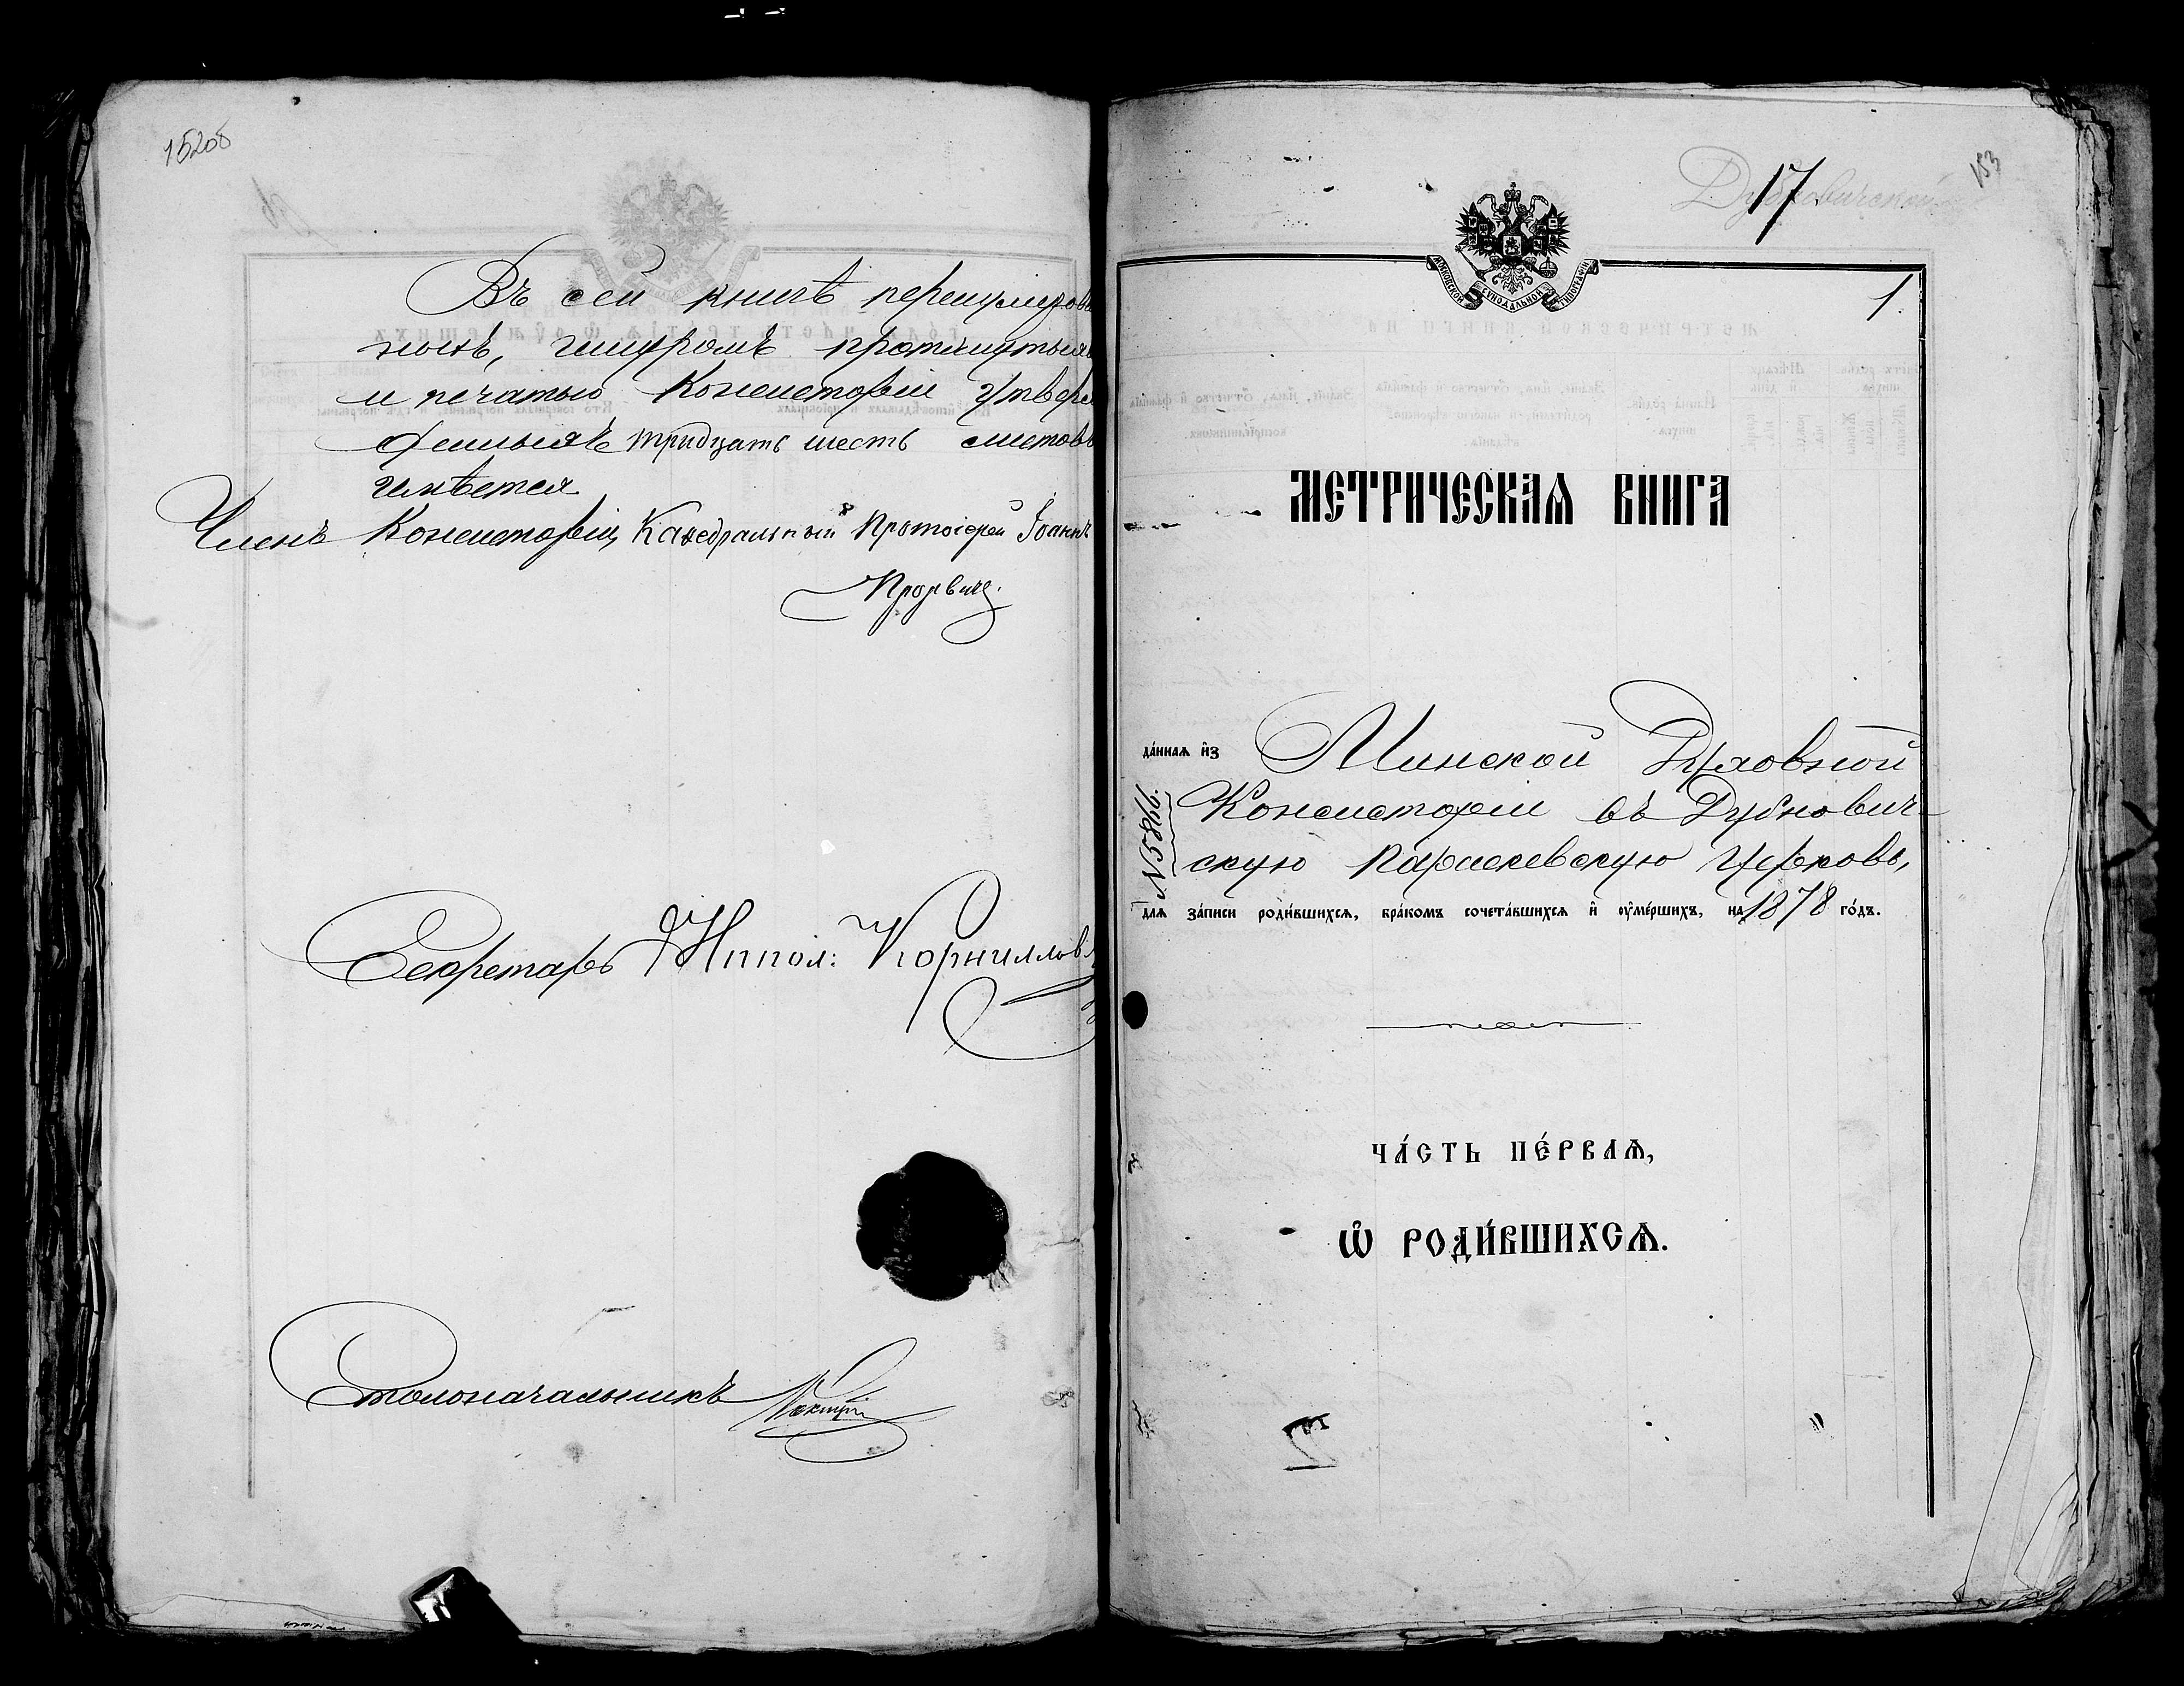 152об
Въ сей книгѣ перенумеров
ныхъ, шнуромъ протянутыхъ
и печатью Консисторіи утверж
денныхъ тридцать шесть листовъ
имѣется
Членъ Консисторіи, Каѳедральный Протоіерей Іоаннъ
Секретарь Иппол: Корниллов
Столоначальникъ
153
Дубновичской
17
МОСКОВСКОЙ СѴНОДАЛЬНОЙ ТИПОГРАФІИ
1.
МЕТРИЧЕСКАѦ КНИГА
да́ннаѧ и҆з Минской Духовной
Консисторіи въ Дубнович-
скую Параскевскую Церковь,
№ 5866.
длѧ за́писи роди́вшихсѧ, бра́комъ сочета́вшихсѧ и҆ ᲂу҆ме́ршихъ, на 1878 го́дъ.
ЧА́СТЬ ПЕ́РВАѦ,
Ѡ҆ РОДИ́ВШИХСѦ.